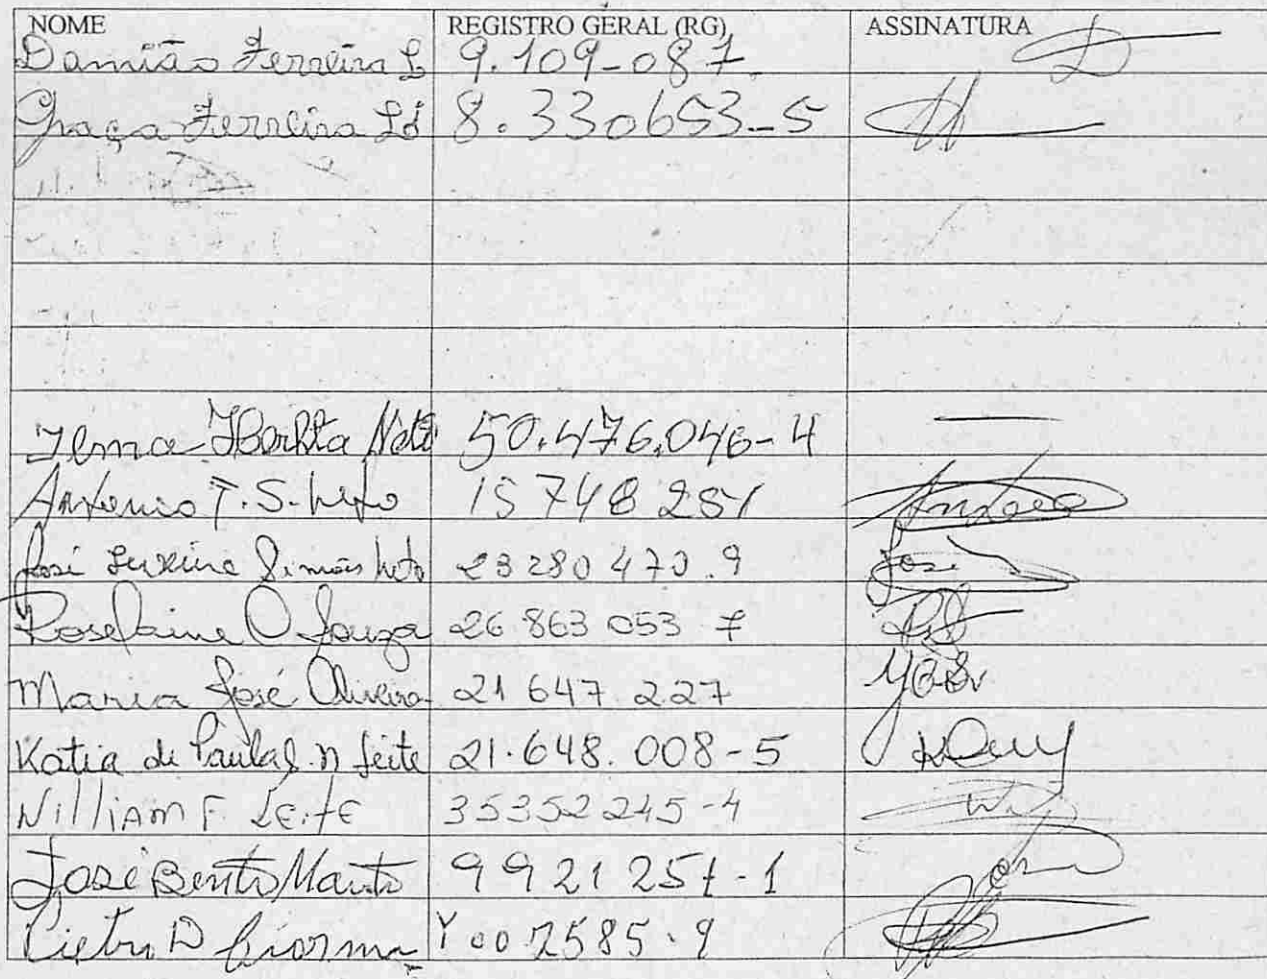 NOME REGISTRO GERAL (RG) ASSINATURA
Damião Ferreira L 9.109-087
Graça Ferreira Ld 8.330653-5
Ilma Neto 50.476.046-4
Antonio T.S. Neto 15 748 251 Antonio
José Simões Neto 23 280 473.9 José
Roselaine O Souza 26 863 053 7
Maria José Oliveira 21 647.227
Katia de Paula n Leite 21.648.008-5
William F LEitE 35352245-4 W
José Bento 9921251-1 José
Pietro D Y002585.9